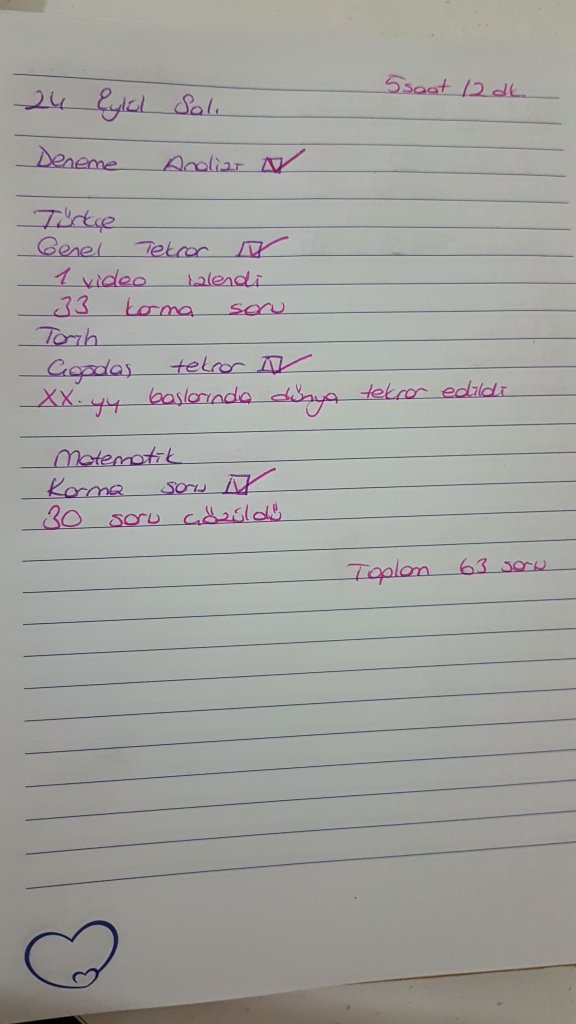 5 saat 12 dk.
24 Eylül Salı
Deneme Analizi
Türkçe
Genel Tekrar
1 video izlendi
33 karma soru
Tarih
Çağdaş tekrar
XX. yy başlarında dünya tekrar edildi
Matematik
Karma soru
30 soru çözüldü
Toplam 63 soru